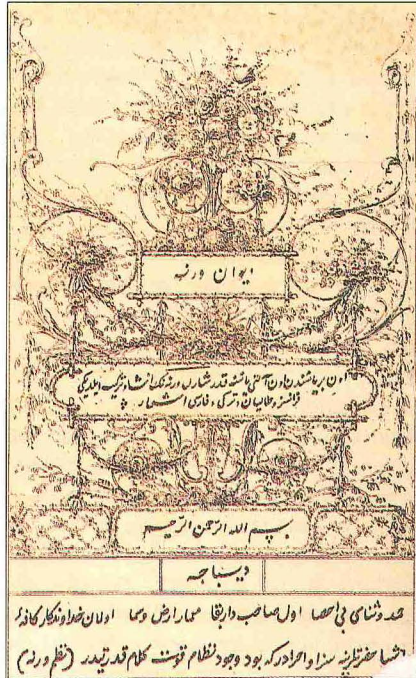 دیوان ورنه
اون بر یاشندن اون آلتی یاشنه قدر شاعر ورنه نك انشا و ترکیب ایلدیکی
فرانسز و طالیان و ترکی و فارسی اشعار
بسم الله الرحمن الرحیم
دیباجه
حمد و ثنای بی احصا اول صاحب دار بقا معمار ارض و سما اولان خداوندکار کافهٔ
اشیا حضرتلرینه سزا و احرادر که بود وجود نظام قوت کلام قدرتیدر (نظم ورنه)